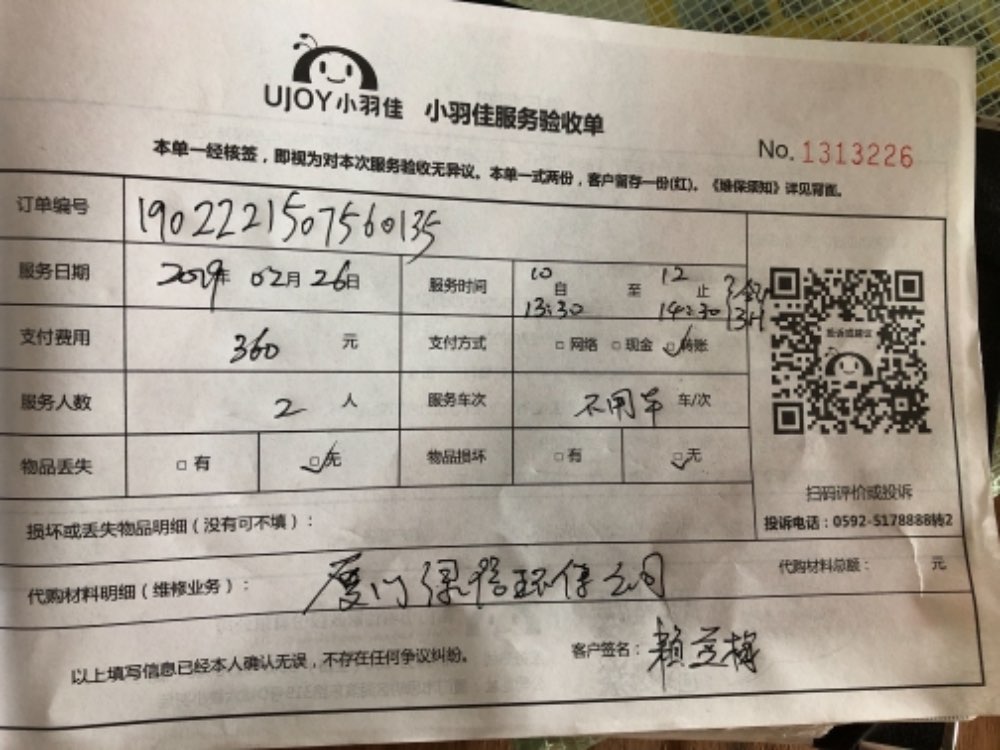 UJOY小羽佳 小羽佳服务验收单
No. 1313226
本单一经核签，即视为对本次服务验收无异议。本单一式两份，客户留存一份(红)。《维保须知》详见背面。
订单编号 190222150756035
服务日期 2019年 02月 26日 服务时间 10 自 13:30 至 12 止 14:30
支付费用 360 元 支付方式 □网络 □现金 □转账
投诉或建议
服务人数 2 人 服务车次 不用车 车/次
物品丢失 □有 □无 物品损坏 □有 □无
扫码评价或投诉
投诉电话：0592-5178888转2
损坏或丢失物品明细（没有可不填）：
代购材料明细（维修业务）： 厦门绿 环保公司 代购材料总额： 元
以上填写信息已经本人确认无误，不存在任何争议纠纷。 客户签名： 赖